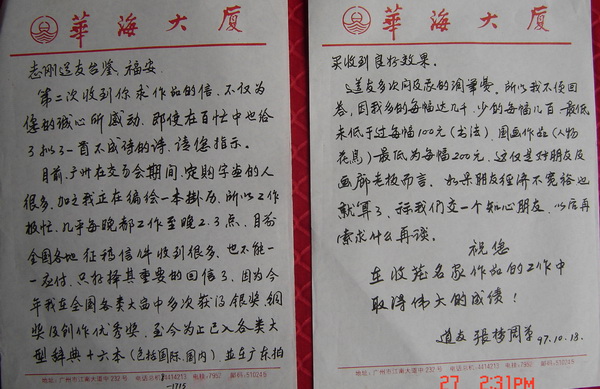 華海大厦
志刚道友台鉴、福安
第二次收到你求作品的信、不仅为
您的诚心所感动、即使在百忙中也给
了拟了一首不成诗的诗、请您指示。
目前、广州在交易会期间、定购字画的人
很多、加之我正在编绘一本挂历、所以工作
极忙、几乎每晚都工作至晚2.3点、目前
全国各地征稿信件收到很多、也不能一
一应付、只好择其重要的回信了、因为今
年我在全国各类大奋中多次获得银奖、铜
奖及创作优秀奖、至今为止已入各类大
型辞典十六本(包括国际、国内)、並在广东拍
地址:广州市江南大道中232号 电话总机:4414213 电挂:7952 邮码:510245
-1715
華海大厦
买收到良好效果。
道友多次问及我的润笔费、所以我不便回
答、因我多的每幅达几千、少的每幅几百一最低
未低于过每幅100元(书法)、国画作品(人物
花鸟)一最低为每幅200元、这仅是对朋友及
画廊老板而言、如果朋友经济不宽裕也
就算了、称我们交一个知心朋友、以后再
索求什么再谈。
祝您
在收藏名家作品的工作中
取得伟大的成绩!
道友 张 97.10.18.
地址:广州市江南大道中232号 电话总机:4414213 电挂:7952 邮码:510245
27 2:31PM